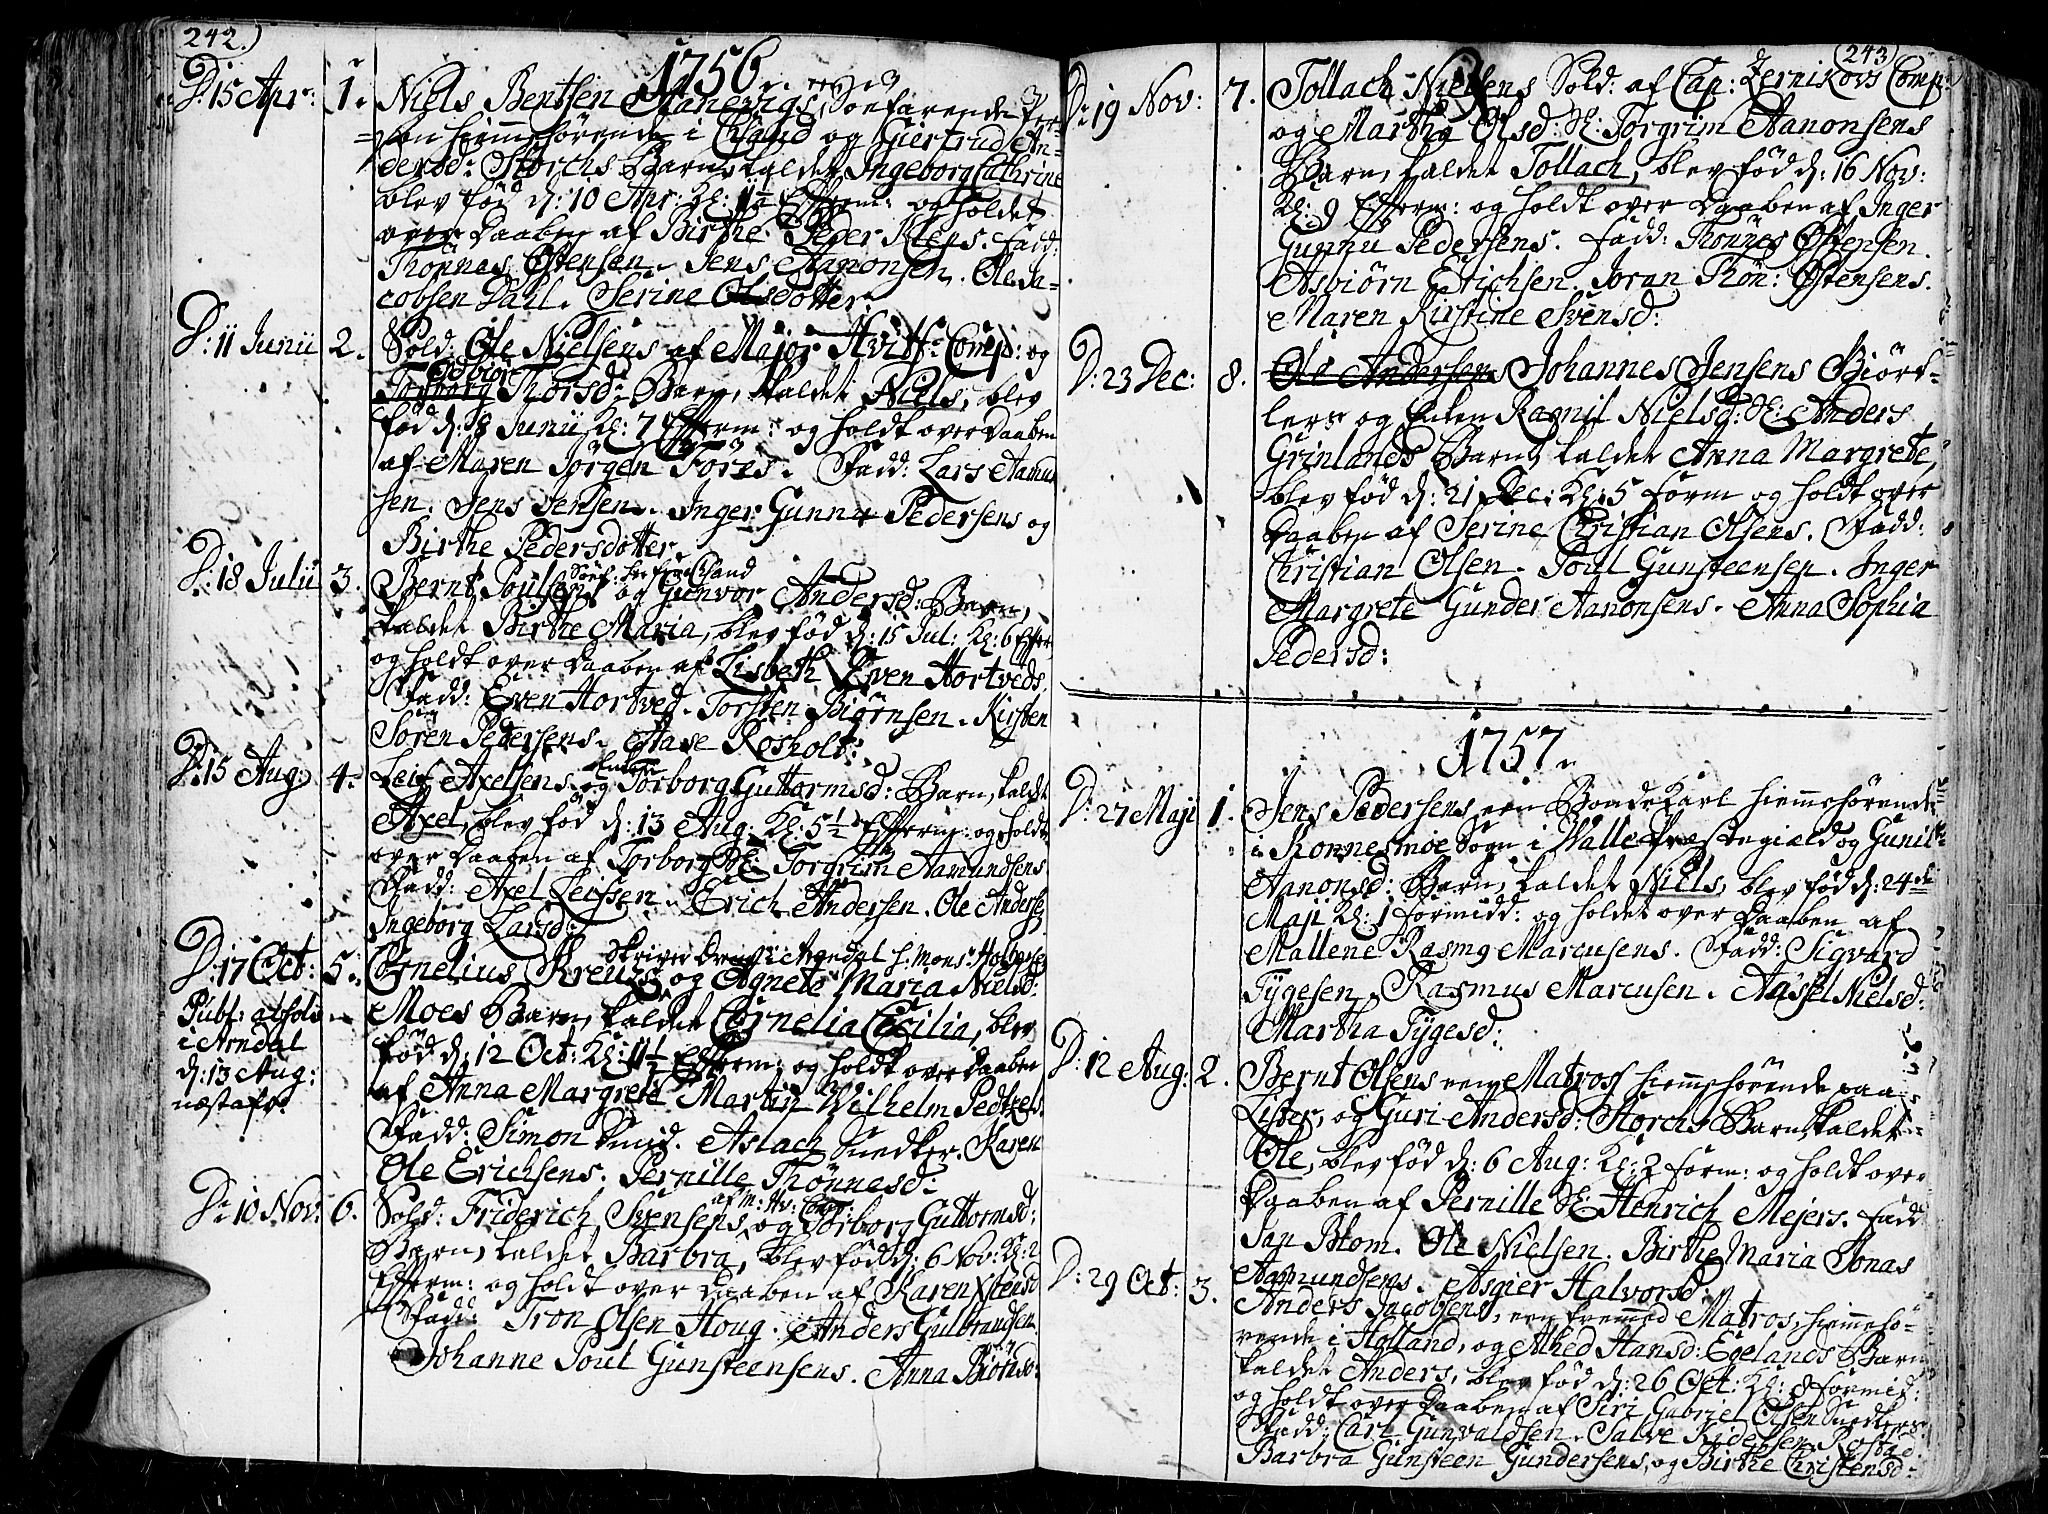 242.)
1756.
D: 15 Apr: 1. Niels Bentsen Søefarende Per-
son hiemmehørende i Chsand og Giertrud An-
dersd: Storchs Barn, kaldet Ingeborg Cathrine
blev fød d: 10 Apr: Kl: Efterm: og holdet
over Daaben af Birthe Peder Fadd:
Thønnes Østensen. Jens Aanonsen. Ole Ja-
cobsen Dahl. Serine Olsdotter
D: 11 Junii 2. Sold: Ole Nielsens af Major Hvitf: Comp: og
Torborg Thorsd: Barn, kaldet Niels, blev
fød d: 8 Junii Kl: 7 Efterm: og holdt over Daaben
af Maren Jørgen Fores. Fadd: Lars Aamun
sen. Jens Jensen. Inger Gunnu Pedersens og
Birthe Pedersdotter
D: 18 Julii 3. Bernt Poulsens og Gunvor Andersd: Barn,
kaldet Birthe Maria, blev fød d: 15 Jul: Kl: 6 Efter
og holdt over Daaben af Lisbeth Even Hortveds.
Fadd: Even Hortved. Torsten Biørnsen. Kirsten
Søren Pedersens. Aase Rosholt:
D: 15 Aug: 4. Leif Axelsens og Enken Torborg Guttormsd: Barn, kaldt
Axel, blev fød d: 13 Aug: Kl: 5½ Efterm: og holdt
over Daaben af Torborg Sl: Torgrim Aamundsens
Fadd: Axel Leifsen. Erich Andersen. Ole Anders:
Ingeborg Larsd:
Skriver Dreng i Arendal h: Mons:
D: 17 Oct: 5. Cornelius Kreuzs og Agnete Maria Nielsd:
Publ: absolv: Moes Barn, kaldet Cornelia Cecilia, blev
i Arndal fød d: 12 Oct: Kl: 11½ Efterm: og holdt over Daaben
d: 13 Aug: af Anna Margrete Martin Wilhelm
næstefr: Fadd: Simon Smid. Aslach Snedker. Karen
Ole Erichsens. Pernille Thønnesd:
af M: Hv: Comp:
D: 10 Nov: 6. Sold: Friderich Svensens og Torborg Guttormsd:
Barn, kaldet Barbra, blev fød d: 6 Nov: Kl: 2
Efterm: og holdt over Daaben af Karen Xstensd
Fadd: Tron Olsen Houg. Anders Gulbrandsen
Johanne Poul Gunsteensens. Anna
(243)
D: 19 Nov: 7. Tollach Nielsens Sold: af Cap: Zernikovs Comp:
og Martha Olsd: Sl: Torgrim Aanonsens
Barn, kaldet Tollach, blev fød d: 16 Nov:
Kl: 9 Efterm: og holdt over Daaben af Inger
Gunnu Pedersens. Fadd: Thønnes Østensen.
Asbiørn Erichsen. Joran Thøn: Østensens.
Maren Kirstine Svensd:
D: 23 Dec: 8. Ole Andersens Johannes Jensens Biørt-
lers og Enken Ragnil Nielsd: Sl: Anders
Grinlands Barn, kaldet Anna Margrete,
blev fød d: 21 Dec: Kl: 5 Form og holdt over
Daaben af Serine Christian Olsens. Fadd:
Christian Olsen. Poul Gunsteensen. Inger
Margrete Gunder Aanonsens. Anna Sophia
Pedersd:
1757
D: 27 Maji 1. Jens Pedersens, een Bonde Karl hiemmehørende
i Konnesmoe Sogn i Walle Præstegield og Gunil-
Aanonsd: Barn, kaldet Niels, blev fød d: 24de
Maji Kl: 1 Formidd: og holdet over Daaben af
Mallene Rasmg Marcusens. Fadd: Sigvard
Tygesen. Rasmus Marcusen. Aassel Nielsd:
Martha Tygesd:
D: 12 Aug: 2. Bernt Olsens een Matros hiemmehørende paa
Lister, og Guri Andersd: Storchs Barn, kaldet
Ole, blev fød d: 6 Aug: Kl: 2 Form: og holdt over
Daaben af Pernille Sl: Henrich Mejers. Fadd
Jan Blom. Ole Nielsen. Birthe Maria Jonas
Aamundsens. Asgier Halvorsd:
D: 29 Oct: 3. Anders Jacobsens, een fremmed Matros, hiemmehø-
rende i Holland, og Alhed Hansd: Egelands Barn
kaldet Anders, blev fød d: 26 Oct: Kl: 8 Formid:
og holdt over Daaben af Siri Gabriel Olsen Snedkers.
Fadd: Carl Gunvaldsen. Salve
Barbra Gunsteen Gundersens, og Birthe Christensd: